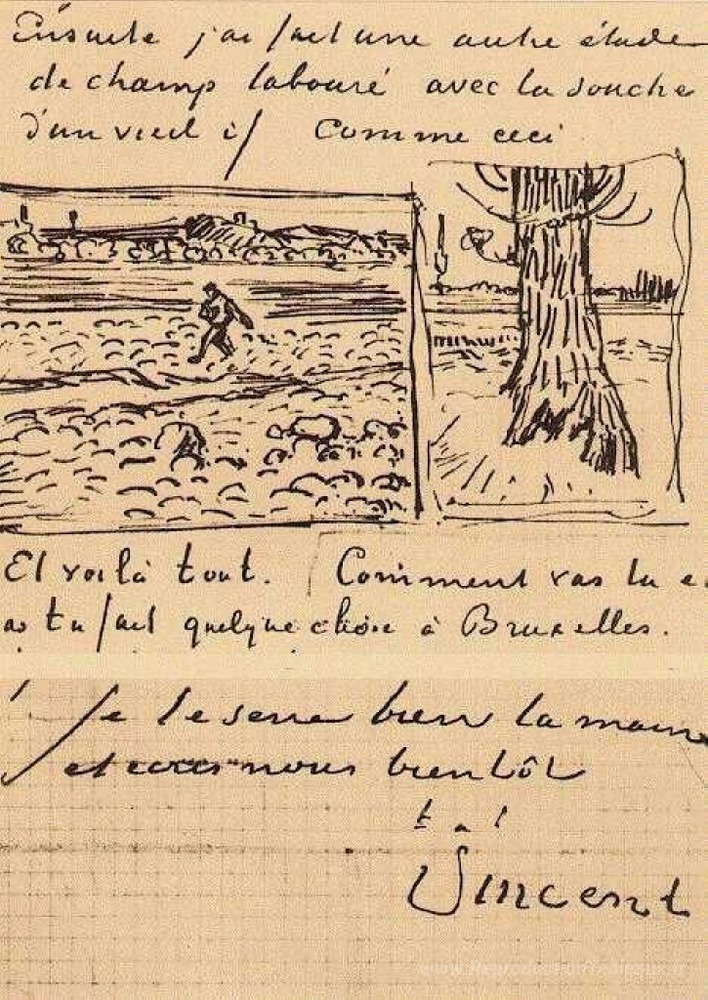 Ensuite j'ai fait une autre étude
de champ labouré avec la souche
d'un vieil if Comme ceci
Et voilà tout. Comment vas tu e
as tu fait quelque chose à Bruxelles.
Je te serre bien la main
et nous bientôt
t. à. t
Vincent